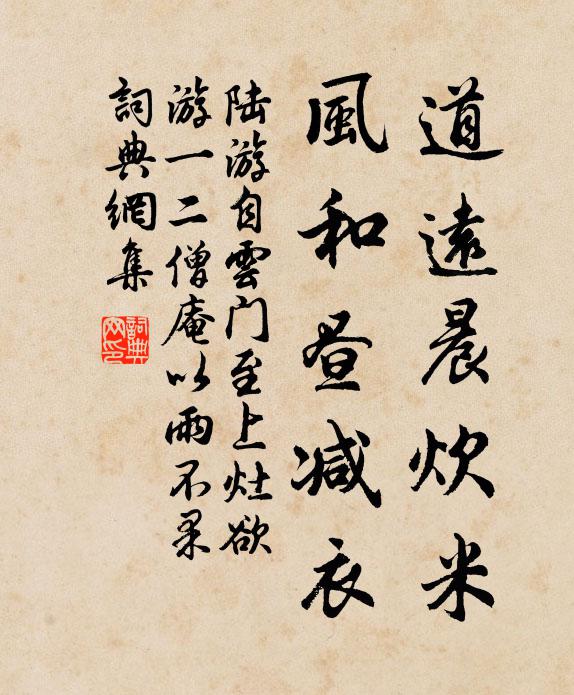 道遠晨炊米
風和昼減衣
陆游自雲门至上灶欲
游一二僧庵以雨不果
詞典網集
詞典
网印